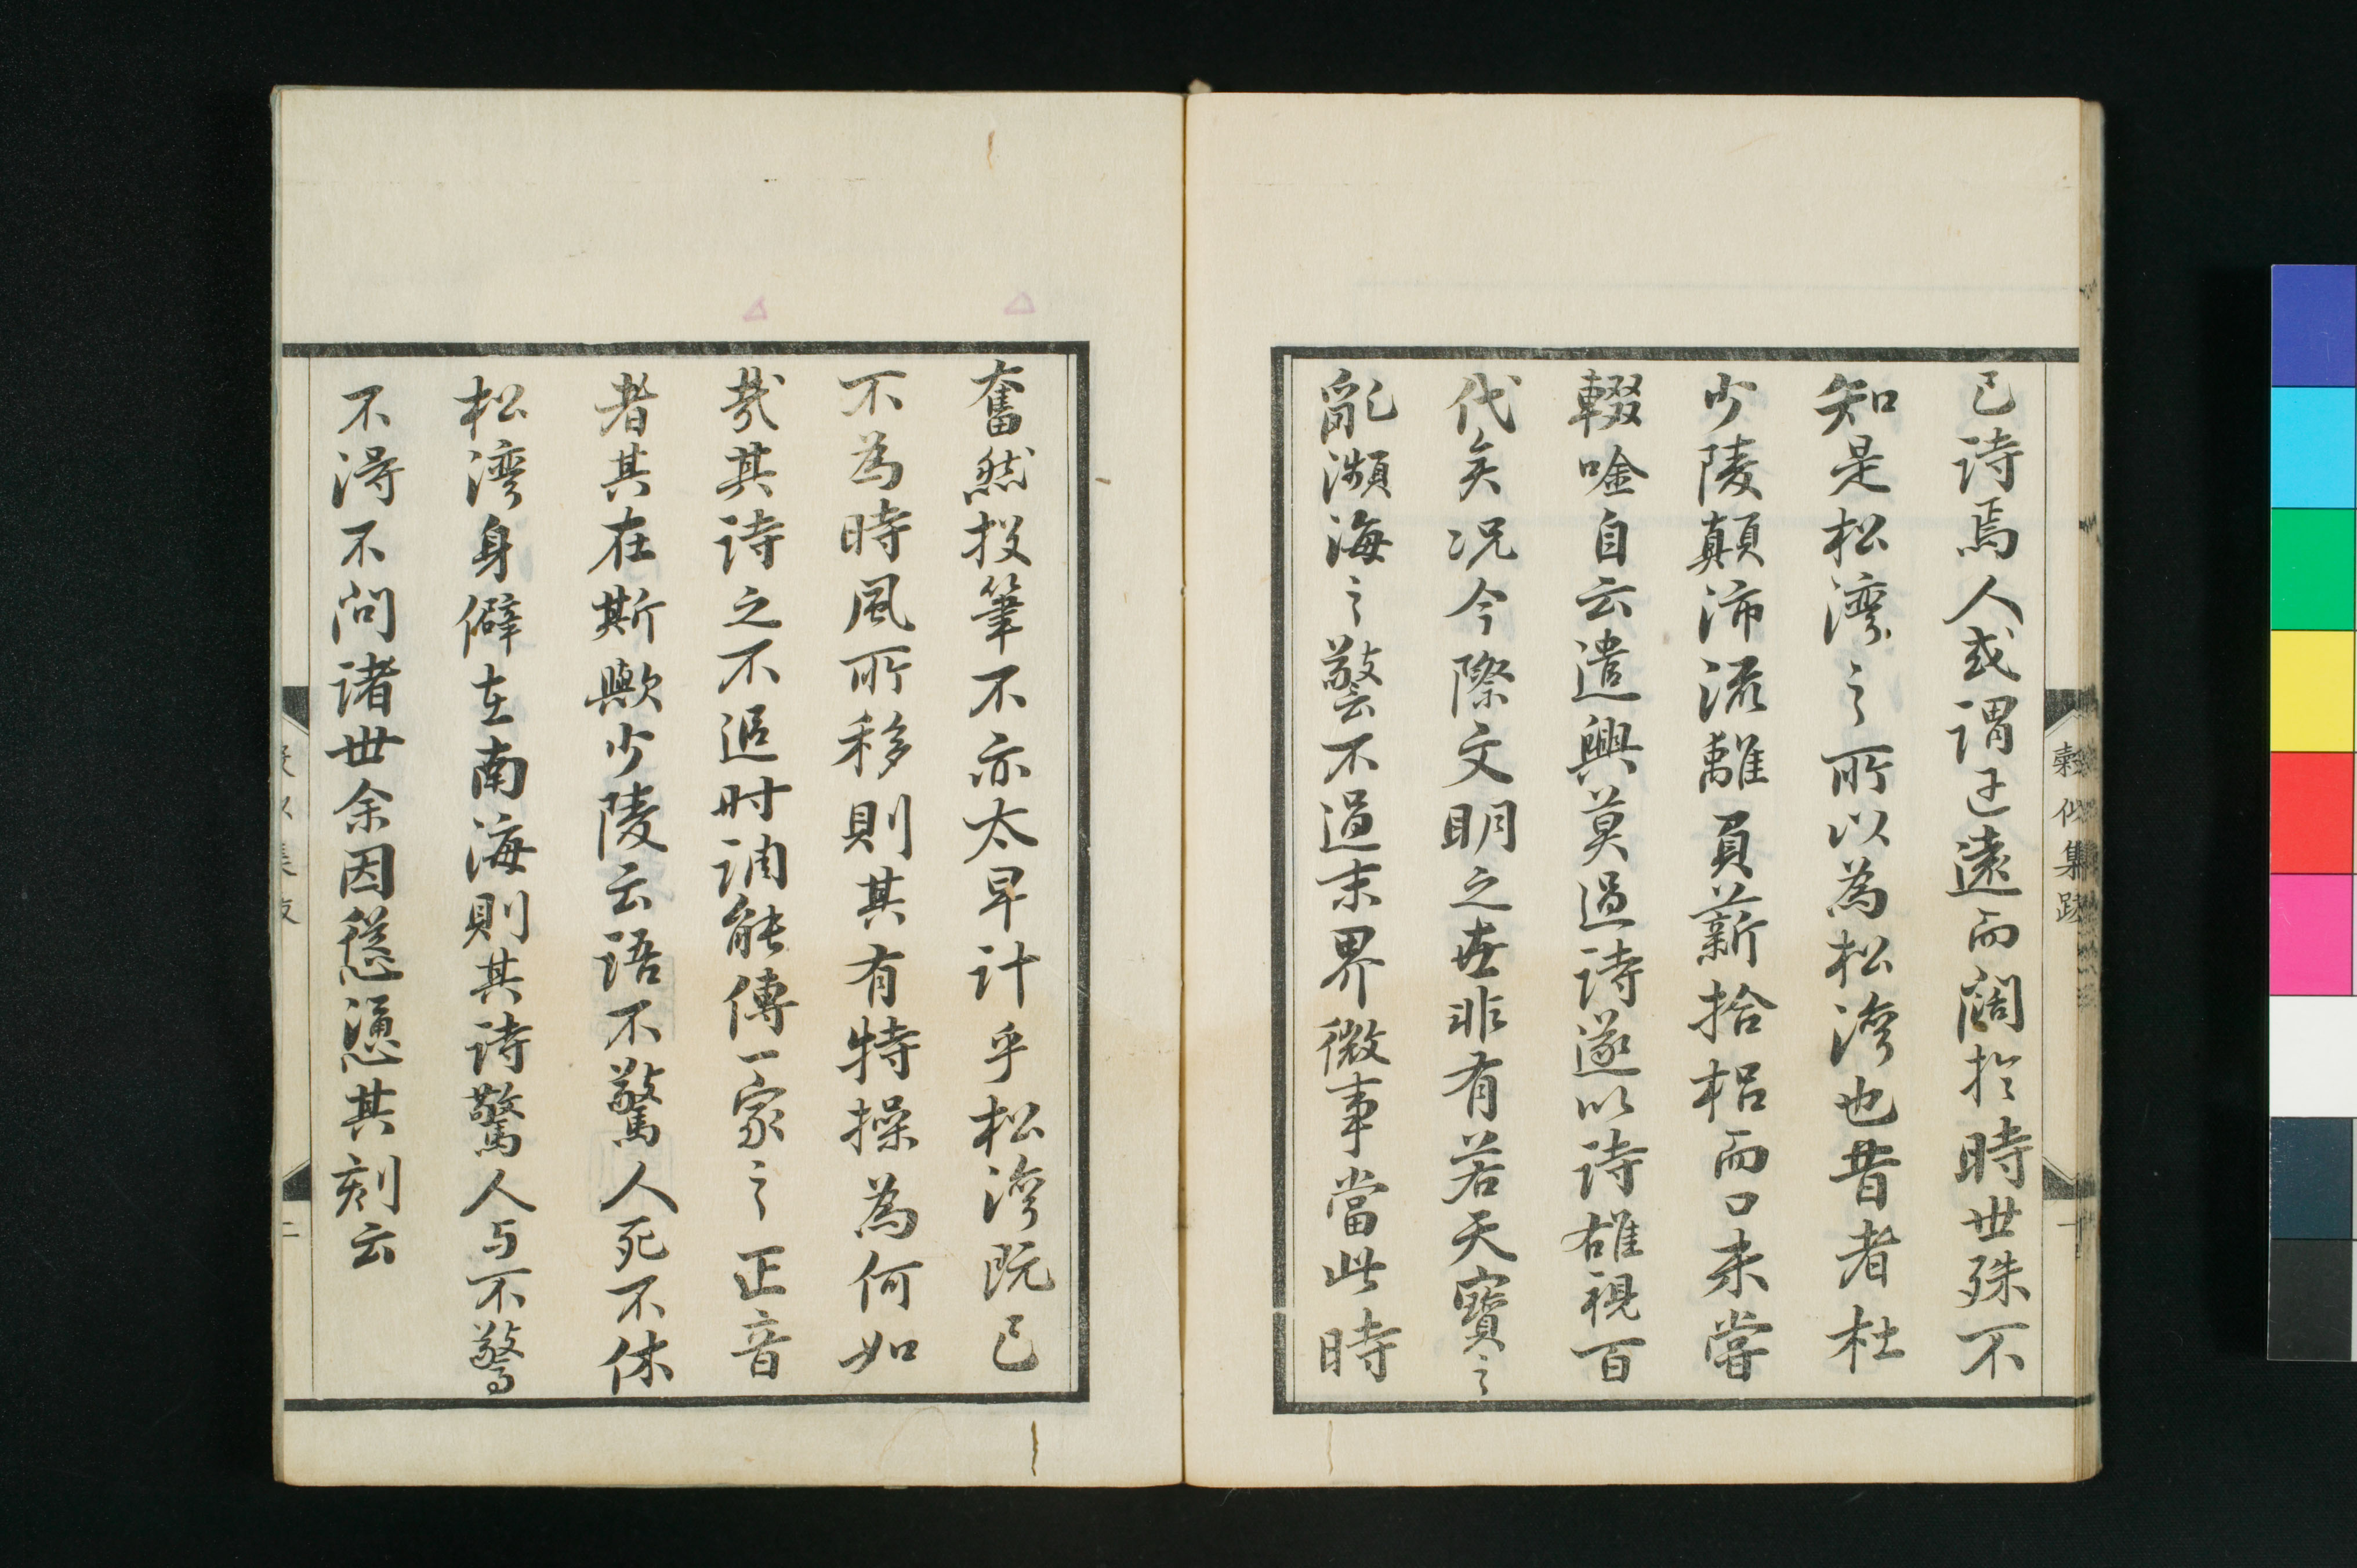 已詩焉人或謂迂遠而闊於時世殊不
知是松湾之所以為松湾也昔者杜
少陵顛沛流離負薪拾梠而口未嘗
輟唫自云遣興莫過詩遂以詩雄視百
代矣况今際文明之世非有若天寶之
亂瀕海之警不過末界微事當此時
奮然投筆不亦太早計乎松湾既已
不為時風所移則其有特操為何如
哉其詩之不追时调能傳一家之正音
者其在斯歟少陵云語不驚人死不休
松湾身僻在南海則其詩驚人与不驚
不得不問諸世余因慫慂其刻云
集跋
二